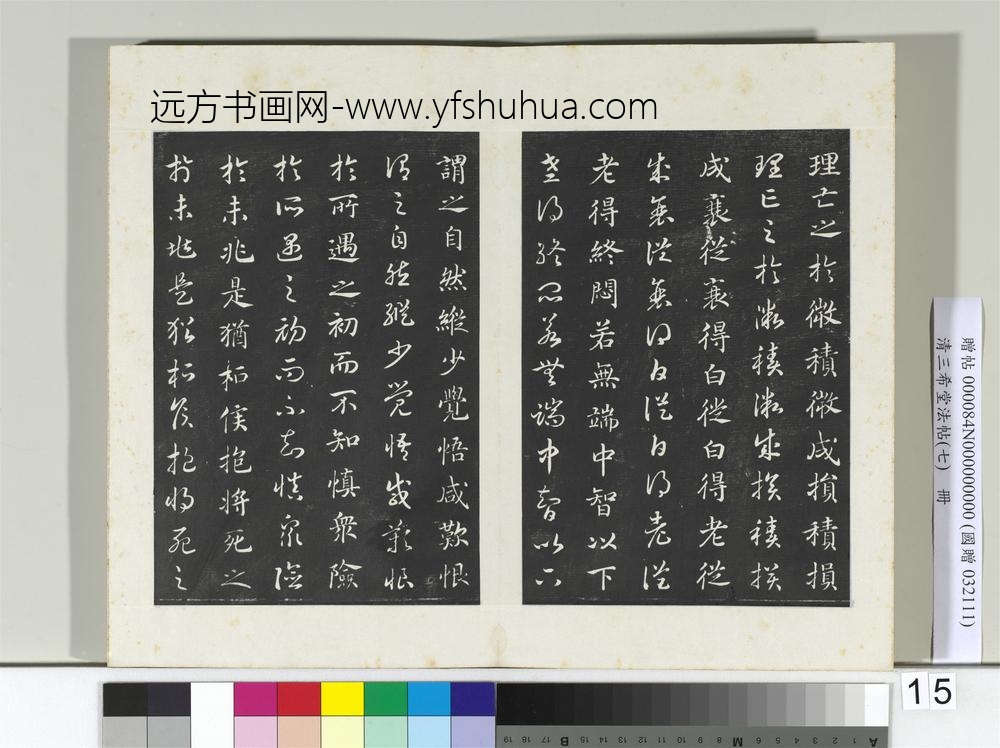 远方书画网-www.yfshuhua.com
理亡之於微積微成損積損
理亡之於微積微成損積損
成衰從衰得白從白得老從
成衰從衰得白從白得老從
老得終悶若無端中智以下
老得終悶若無端中智以下
謂之自然縱少覺悟咸歎恨
謂之自然縱少覺悟咸歎恨
於所遇之初而不知慎衆險
於所遇之初而不知慎衆險
於未兆是猶桓侯抱將死之
於未兆是猶桓侯抱將死之
贈帖 000084N000000000 (國贈 032111)
清三希堂法帖(七) 冊
15
A 1 2 3 4 5 6 M 8 9 10 11 12 13 14 15 B 17 18 19